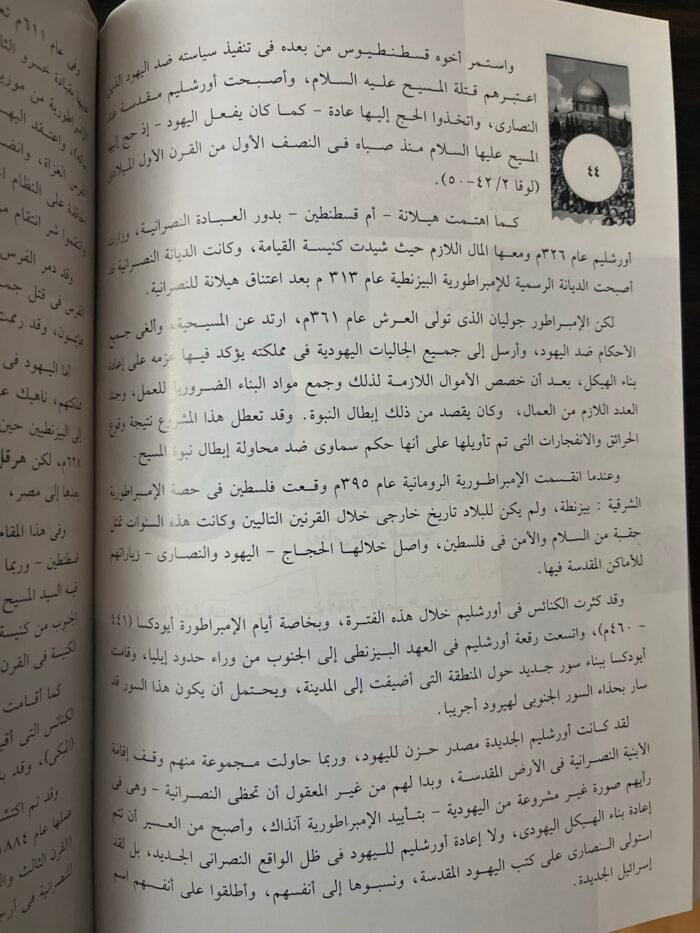 واستمر أخوه قسطنطيوس من بعده فى تنفيذ سياسته ضد اليهود الذين
اعتبرهم قتلة المسيح عليه السلام، وأصبحت أورشليم مقدسة عند
النصارى، واتخذوا الحج إليها عادة – كما كان يفعل اليهود – إذ حج إليها
المسيح عليها السلام منذ صباه فى النصف الأول من القرن الأول الميلادى
(لوقا ٢/ ٤٢–٥٠).
٤٤
كما اهتمت هيلانة – أم قسطنطين – بدور العبادة النصرانية، وزارت
أورشليم عام ٣٢٦م ومعها المال اللازم حيث شيدت كنيسة القيامة، وكانت الديانة النصرانية قد
أصبحت الديانة الرسمية للإمبراطورية البيزنطية عام ٣١٣ م بعد اعتناق هيلانة للنصرانية.
لكن الإمبراطور جوليان الذى تولى العرش عام ٣٦١م، ارتد عن المسيحية، وألغى جميع
الأحكام ضد اليهود، وأرسل إلى جميع الجاليات اليهودية فى مملكته يؤكد فيها عزمه على إعادة
بناء الهيكل، بعد أن خصص الأموال اللازمة لذلك وجمع مواد البناء الضرورية للعمل، وجند
العدد اللازم من العمال، وكان يقصد من ذلك إبطال النبوة. وقد تعطل هذا المشروع نتيجة وقوع
الحرائق والانفجارات التى تم تأويلها على أنها حكم سماوى ضد محاولة إبطال نبوة المسيح.
وعندما انقسمت الإمبراطورية الرومانية عام ٣٩٥م وقعت فلسطين فى حصة الإمبراطورية
الشرقية : بيزنطة، ولم يكن للبلاد تاريخ خارجى خلال القرنين التاليين وكانت هذه السنوات تمثل
حقبة من السلام والأمن فى فلسطين، واصل خلالها الحجاج – اليهود والنصارى – زياراتهم
للأماكن المقدسة فيها.
وقد كثرت الكنائس فى أورشليم خلال هذه الفترة، وبخاصة أيام الإمبراطورة أيودكسا (٤٤١
– ٤٦٠م)، واتسعت رقعة أورشليم فى العهد البيزنطى إلى الجنوب من وراء حدود إيليا، وقامت
أيودكسا ببناء سور جديد حول المنطقة التى أضيفت إلى المدينة، ويحتمل أن يكون هذا السور قد
سار بحذاء السور الجنوبى لهيرود أجريبا.
لقد كانت أورشليم الجديدة مصدر حزن لليهود، وربما حاولت مجموعة منهم وقف إقامة
الأبنية النصرانية فى الأرض المقدسة، وبدا لهم من غير المعقول أن تحظى النصرانية – وهى فى
رأيهم صورة غير مشروعة من اليهودية – بتأييد الإمبراطورية آنذاك، وأصبح من العسير أن تتم
إعادة بناء الهيكل اليهودى، ولا إعادة أورشليم لليهود فى ظل الواقع النصرانى الجديد، بل لقد
استولى النصارى على كتب اليهود المقدسة، ونسبوها إلى أنفسهم، وأطلقوا على أنفسهم اسم
إسرائيل الجديدة.